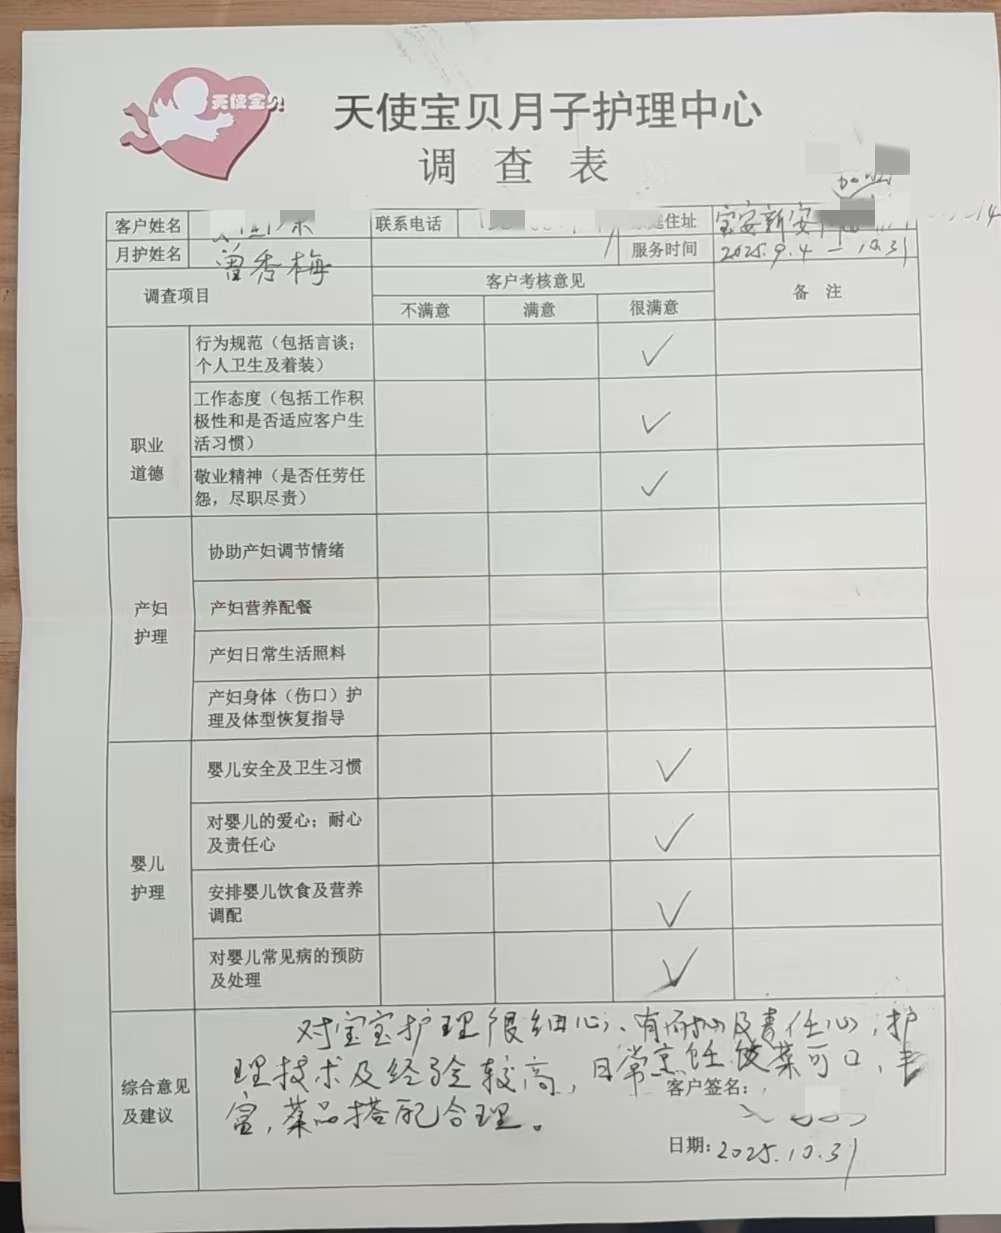 天使宝贝
天使宝贝月子护理中心
调查表
客户姓名 联系电话 住址 宝安新安
月护姓名 曾秀梅 服务时间 2025.9.4 — 10.31
调查项目 客户考核意见 备注
不满意 满意 很满意
职业
道德
行为规范（包括言谈；
个人卫生及着装）
✓
工作态度（包括工作积
极性和是否适应客户生
活习惯）
✓
敬业精神（是否任劳任
怨，尽职尽责）
✓
产妇
护理
协助产妇调节情绪
产妇营养配餐
产妇日常生活照料
产妇身体（伤口）护
理及体型恢复指导
婴儿
护理
婴儿安全及卫生习惯
✓
对婴儿的爱心；耐心
及责任心
✓
安排婴儿饮食及营养
调配
✓
对婴儿常见病的预防
及处理
✓
综合意见
及建议
对宝宝护理很细心、有耐心及责任心，护
理技术及经验较高，日常烹饪饭菜可口，丰
富，菜品搭配合理。
客户签名：
日期：2025.10.31